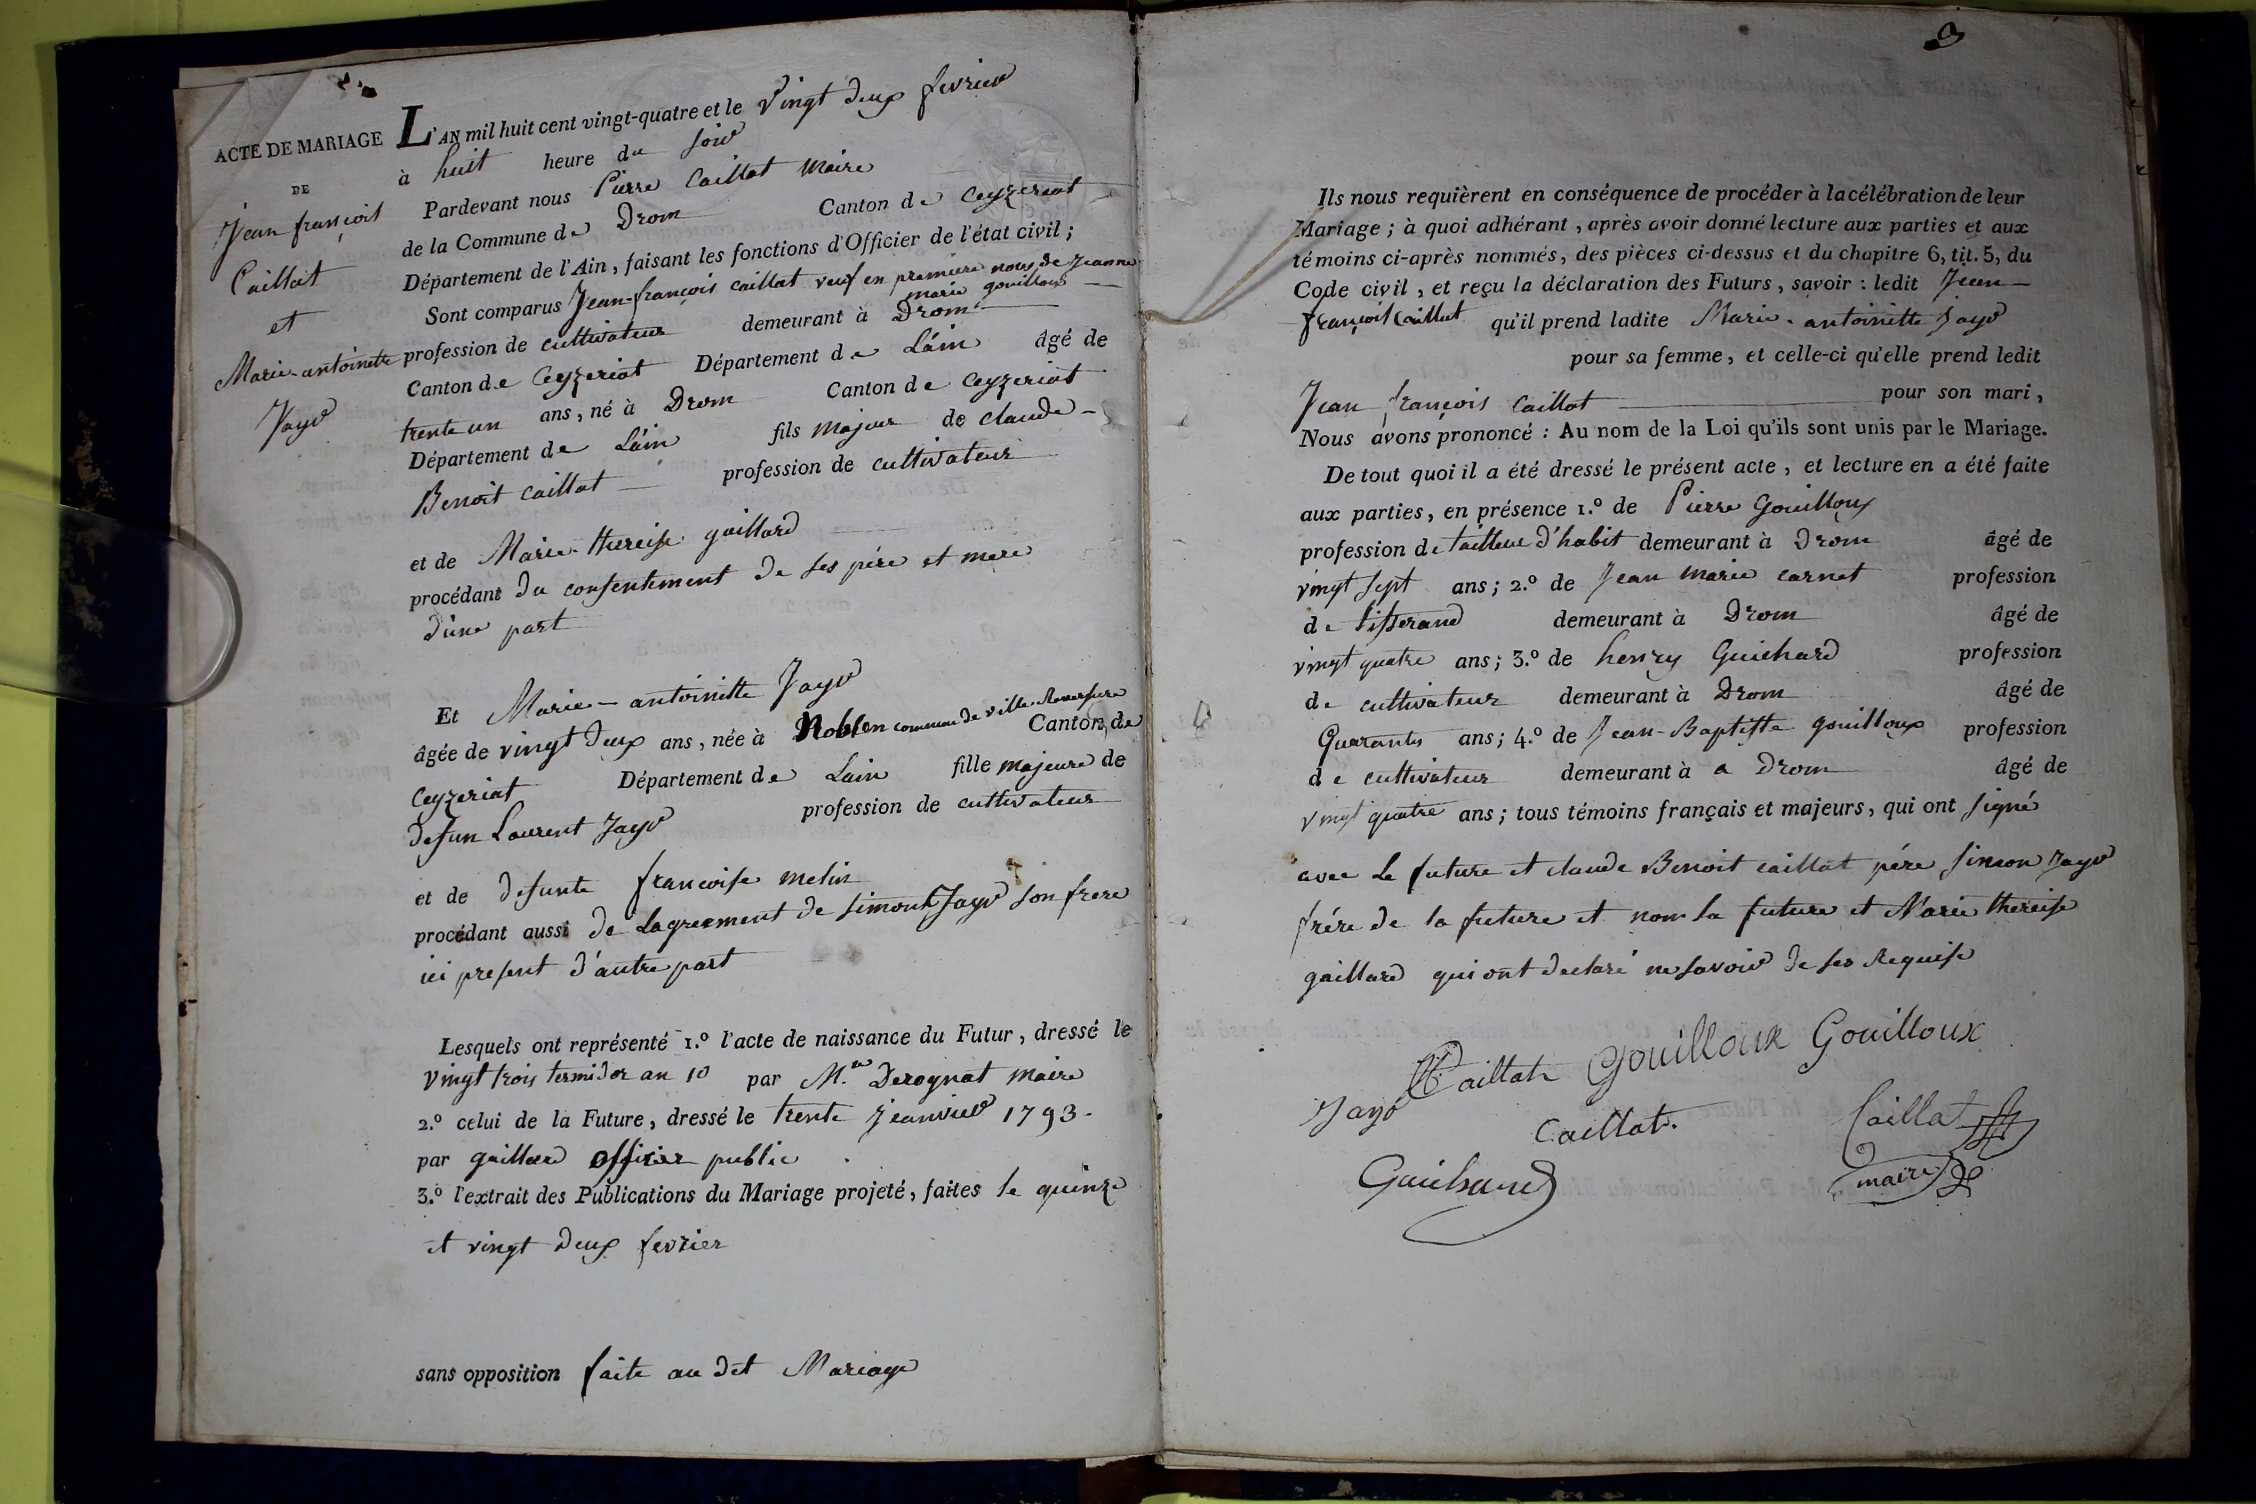 ACTE DE MARIAGE
DE
Jean françois
Caillat
et
Marie-antoinette
Jayr
L'AN mil huit cent vingt-quatre et le vingt deux fevrier
à huit heure du soir
Pardevant nous Pierre Caillat Maire
de la Commune de Drom Canton de Ceyzeriat
Département de l'Ain, faisant les fonctions d'Officier de l'état civil;
Sont comparus Jean-françois caillat veuf en premiere nous de Jeanne
marie gouilloux
profession de cultivateur demeurant à Drom
Canton de Ceyzeriat Département de Láin âgé de
trente un ans, né à Drom Canton de Ceyzeriat
Département de Láin fils majeur de claude-
Benoit Caillat profession de cultivateur
et de Marie-thereise gaillard
procédant du consentement de ses pére et mere
d'une part
Et Marie-antoinette Jayr
âgée de vingt deux ans, née à Noblen commune de ville Reversure
Canton de
Ceyzeriat Département de Lain fille majeure de
defun Laurent Jayr profession de cultivateur
et de defunte francoise melin
procédant aussi de Lagreement de simont Jayr son frere
ici present d'autre part
Lesquels ont représenté 1.º l'acte de naissance du Futur, dressé le
vingt trois termidor an 10 par M.r Derognat maire
2.º celui de la Future, dressé le trente Jeanvier 1793.
par gaillard officier public
3.º l'extrait des Publications du Mariage projeté, faites le quinze
et vingt deux fevrier
sans opposition faite au dit Mariage
3
Ils nous requièrent en conséquence de procéder à la célébration de leur
Mariage; à quoi adhérant, après avoir donné lecture aux parties et aux
témoins ci-après nommés, des pièces ci-dessus et du chapitre 6, tit. 5, du
Code civil, et reçu la déclaration des Futurs, savoir: ledit Jean-
françois Caillat qu'il prend ladite Marie-antoinette Jayr
pour sa femme, et celle-ci qu'elle prend ledit
Jean françois Caillat pour son mari,
Nous avons prononcé: Au nom de la Loi qu'ils sont unis par le Mariage.
De tout quoi il a été dressé le présent acte, et lecture en a été faite
aux parties, en présence 1.º de Pierre Gouilloux
profession de tailleur d'habit demeurant à Drom âgé de
vingt sept ans; 2.º de Jean marie carnet profession
de tisserand demeurant à Drom âgé de
vingt quatre ans; 3.º de henry Guichard profession
de cultivateur demeurant à Drom âgé de
Quarante ans; 4.º de Jean-Baptiste gouilloux profession
de cultivateur demeurant à a Drom âgé de
vingt quatre ans; tous témoins français et majeurs, qui ont signé
avec Le future et claude Benoit caillat pére simon Jayr
frére de la future et non la future et Marie thereise
gaillard qui ont declaré ne savoir de ses Requise
Caillat Gouilloux Gouilloux
Jayr
Caillat.
Caillat
maire
Guichard